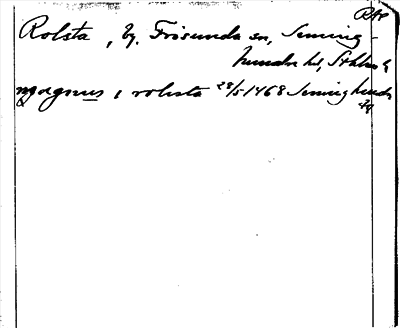 RAp
Rolsta, by, Frösunda sn, Seming-
hundra hd, Sthlms l
magnus i rolista 28/5 1468 Seminghundr